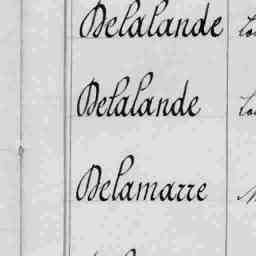 Delalande
Delalande
Delamarre